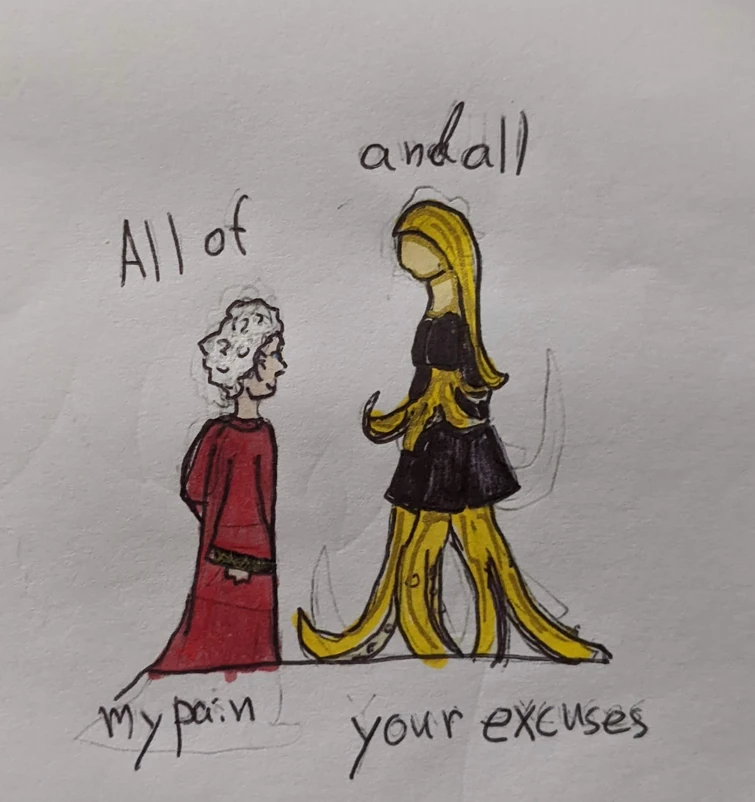 All of
and all
my pain
your excuses